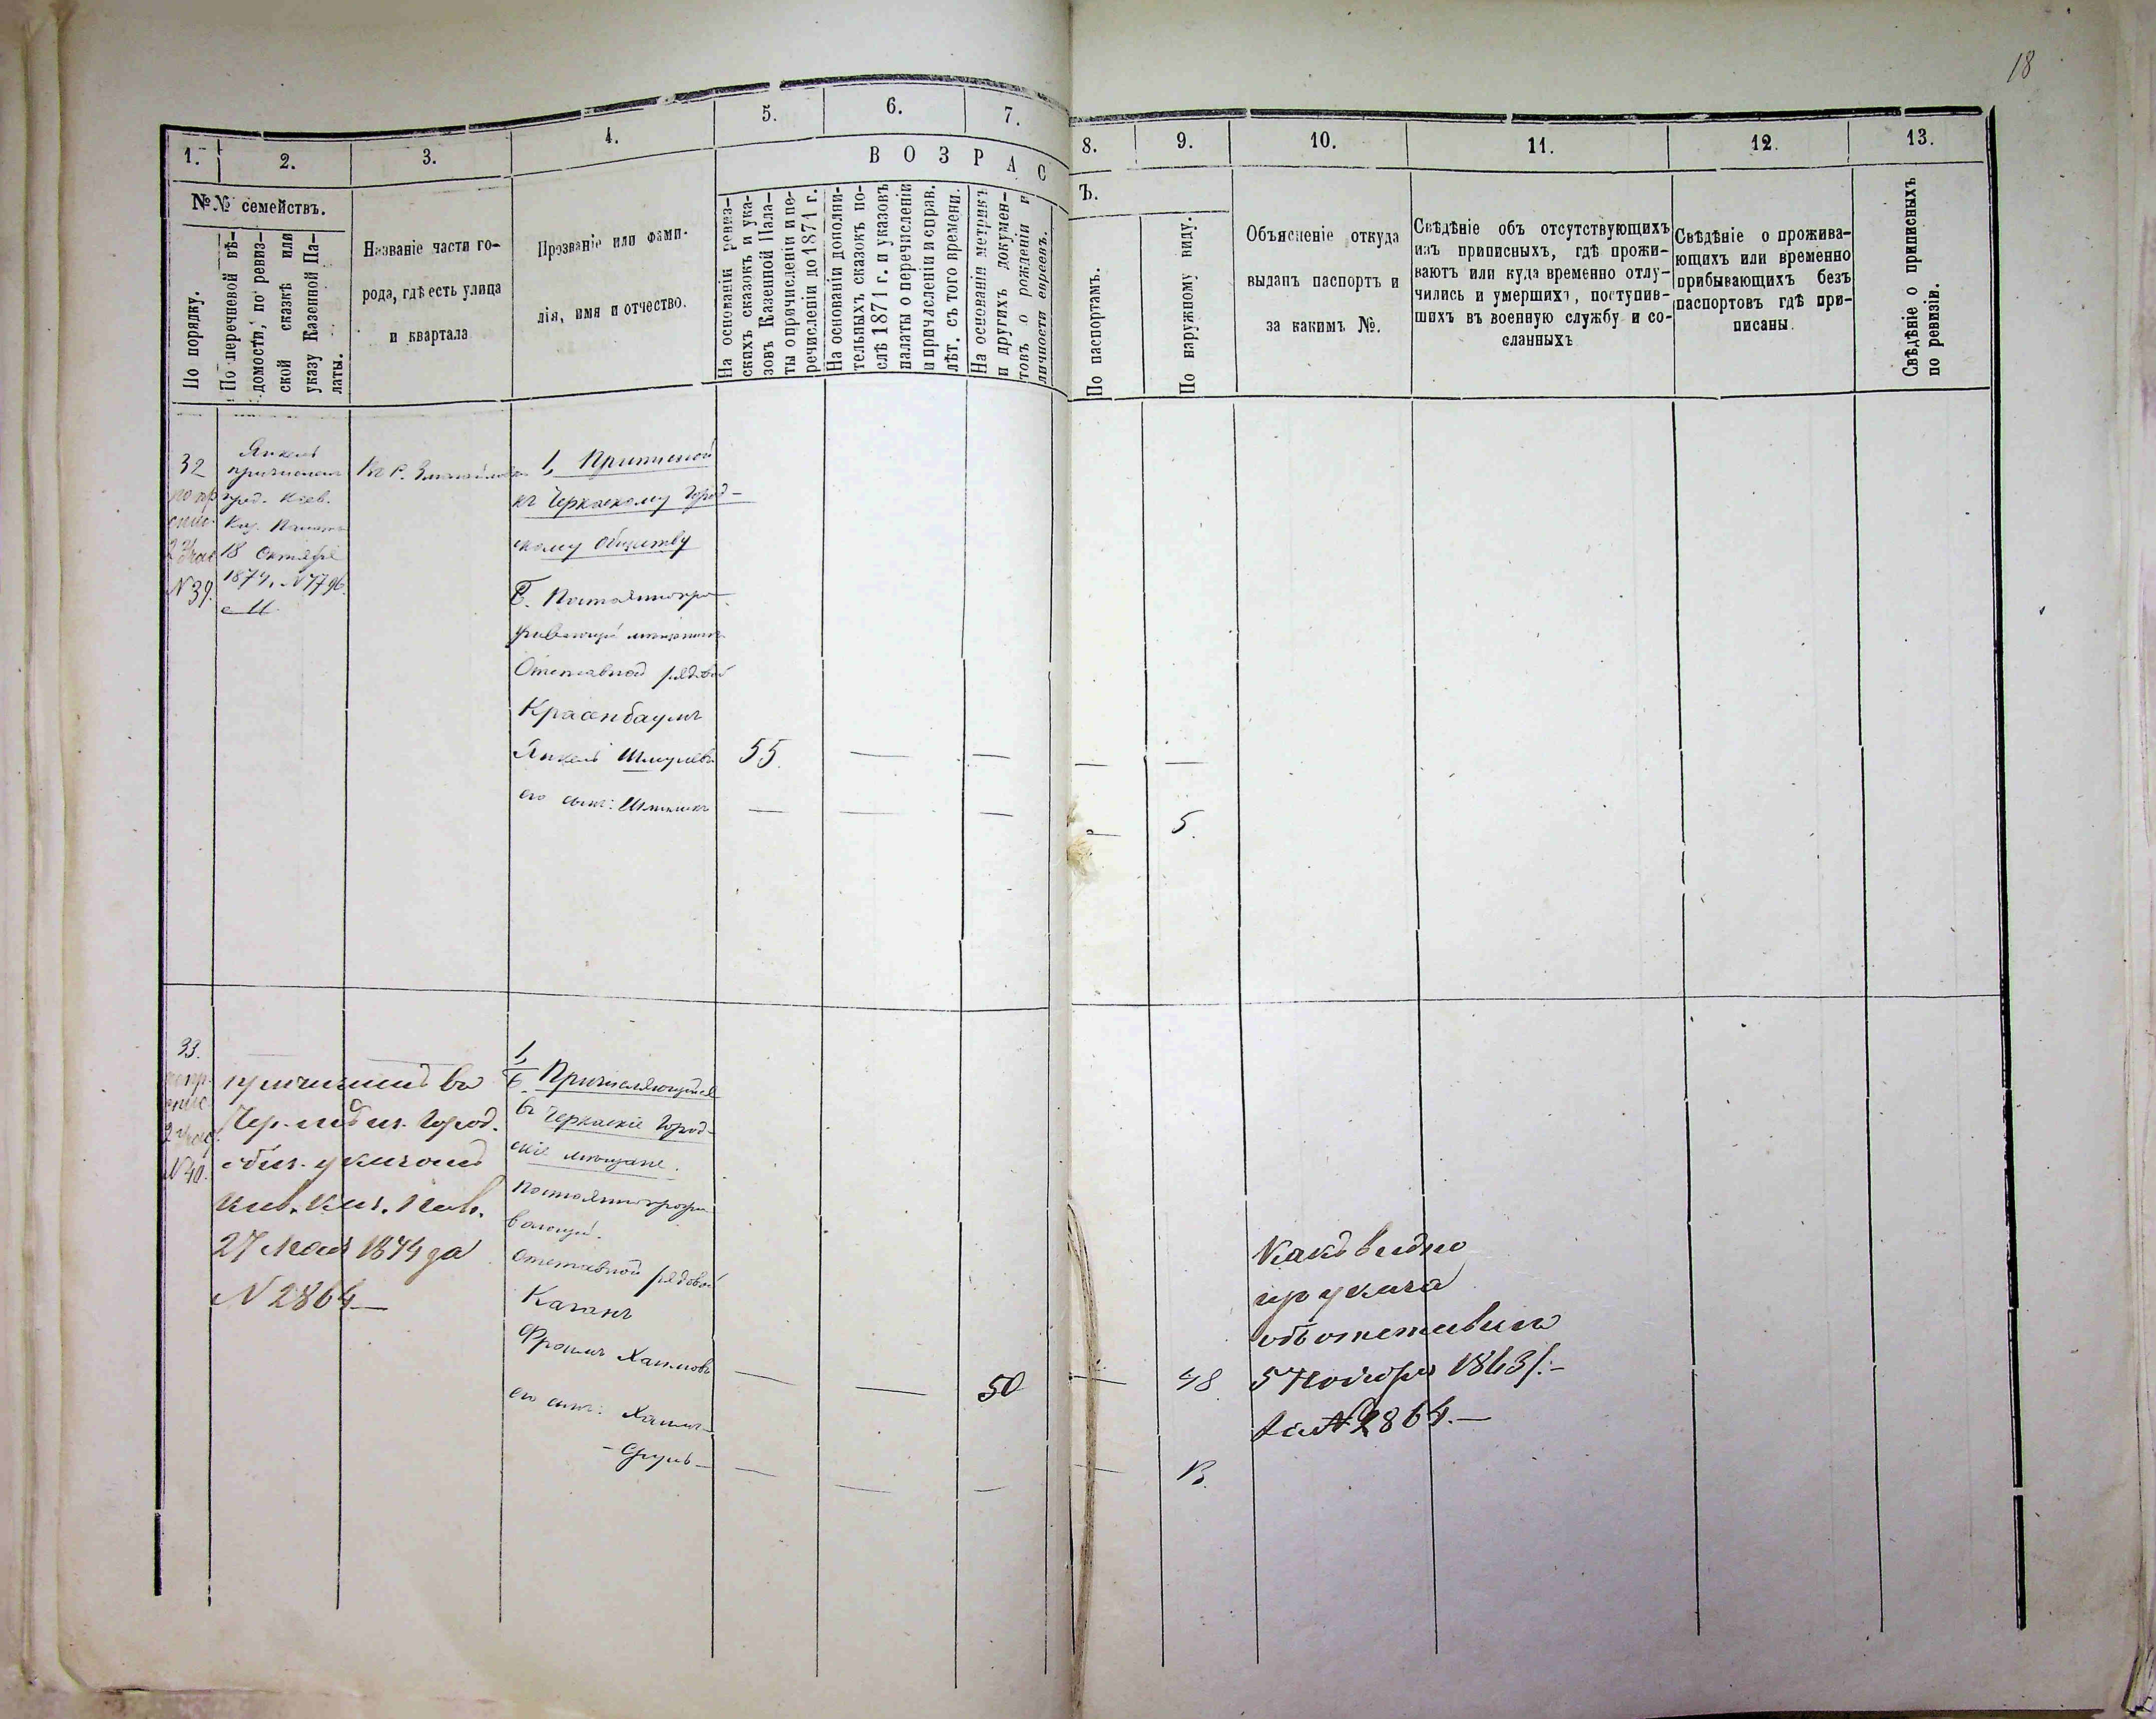 18
1.
2.
3.
4.
5.
6.
7.
8.
9.
10.
11.
12.
13.
ВОЗРАСТЪ.
№№ семействъ.
По порядку.
По перечневой вѣ-
домости, по ревиз-
ской сказкѣ или
указу Казенной Па-
латы.
Названіе части го-
рода, гдѣ есть улица
и квартала
Прозваніе или фами-
лія, имя и отчество.
На основаніи ревиз-
скихъ сказокъ и ука-
зовъ Казенной Пала-
ты о причисленіи и пе-
речисленіи до 1871 г.
На основаніи дополни-
тельныхъ сказокъ по-
слѣ 1871 г. и указовъ
палаты о перечисленіи
и причисленіи и справ.
лѣт. съ того времени.
На основаніи метрикъ
и другихъ докумен-
товъ о рожденіи и
личности евреевъ.
По паспортамъ.
По наружному виду.
Объясненіе откуда
выданъ паспортъ и
за какимъ №.
Свѣдѣніе объ отсутствующихъ
изъ приписныхъ, гдѣ прожи-
ваютъ или куда временно отлу-
чились и умершихъ, поступив-
шихъ въ военную службу и со-
сланныхъ
Свѣдѣніе о прожива-
ющихъ или временно
прибывающихъ безъ
паспортовъ гдѣ при-
писаны.
Свѣдѣніе о приписныхъ
по ревизіи.
32
N 39.
Янкель
причислен
пред. Кіев.
Каз. Палаты
18 Октября
1874, N 7796
1, Приписной
къ Черкаскому Город-
скому Обществу
Б. Постояннопро
живающій
Отставной рядовой
Красенбаумъ
Янкель Шмулевъ 55 — — — —
его сынъ: — — — — 5.
33.
N 40.
причислен въ
Город.
общ. указомъ
Кіев. Каз. Пал.
27 Мая 1874 года
N 2864 —
1,
Б. Причисляющійся
въ Черкаскіе Город-
скіе мещане.
Постояннопрожи
вающій.
Отставной рядовой
Каганъ
Фроимъ Хаимовъ — — 50 — 48
его сынъ: Хаимъ-
-Сруль — — — — 13.
Какъ видно
изъ указа
объ отставки
5 Ноября 1863 г. —
за № 2864. —